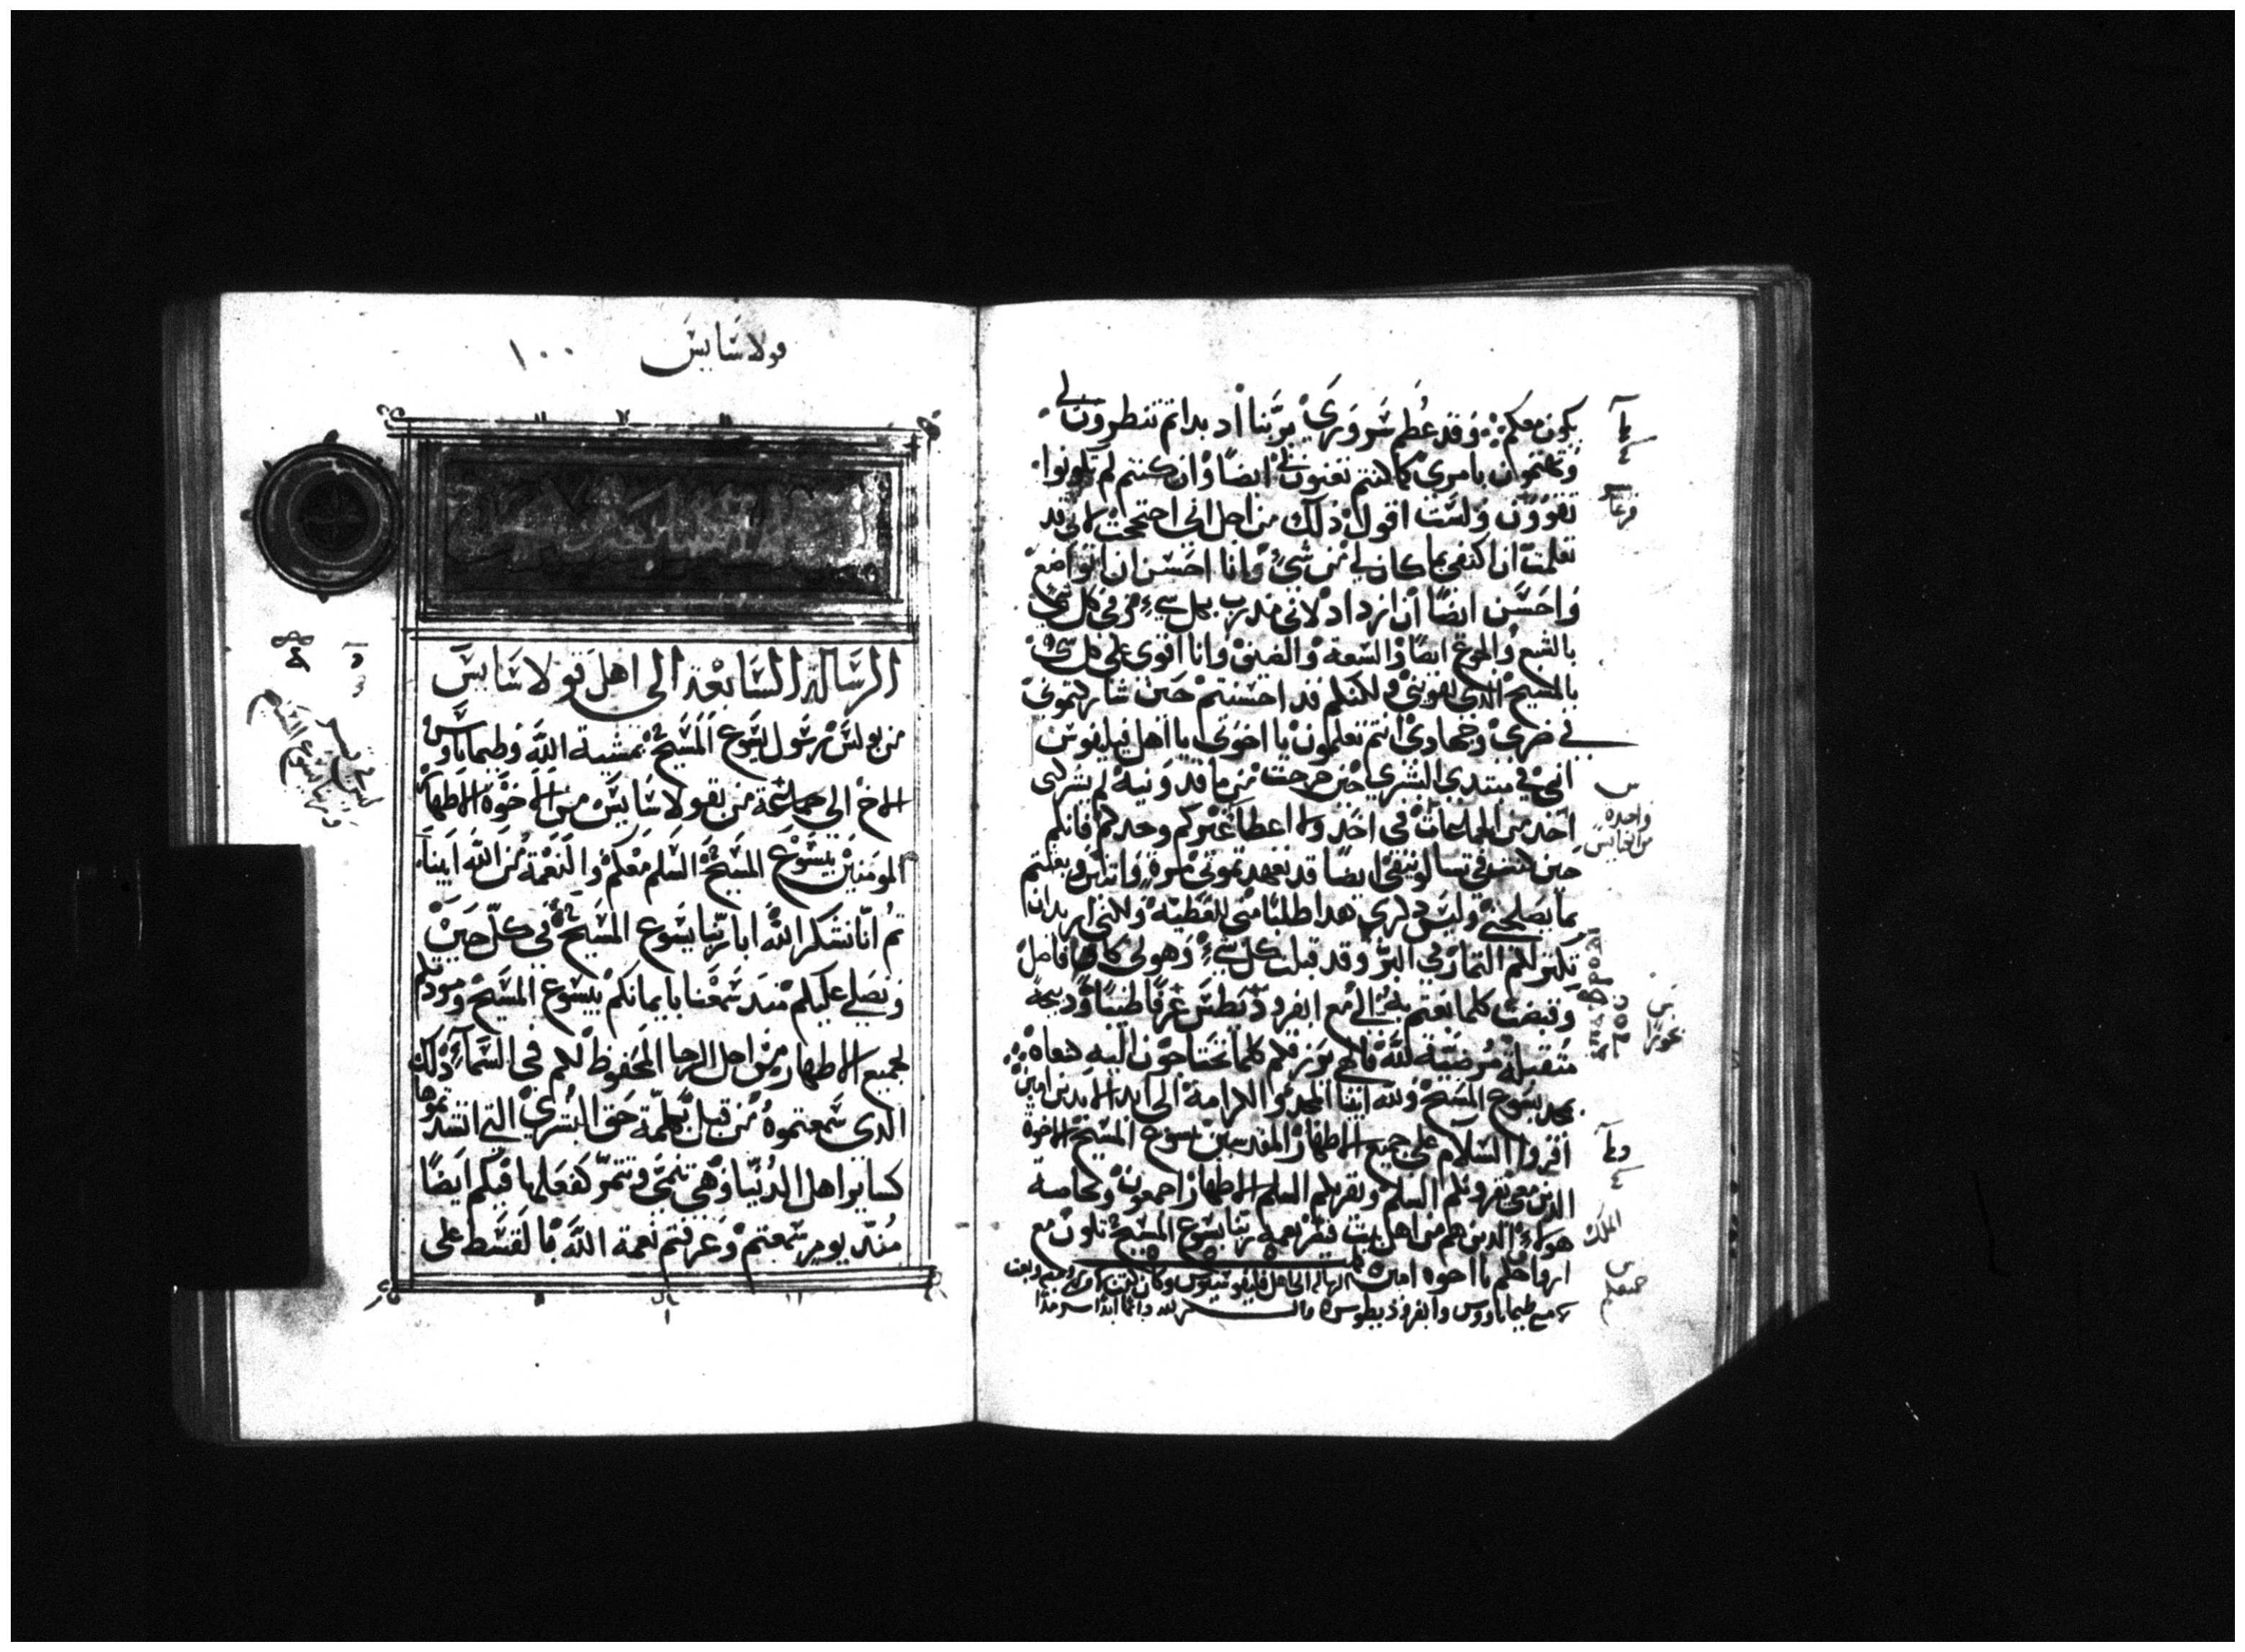 يكون معكم وقد عظم سروري بربنا اد بداتم تنظرون لي
وتهتمون بامري كما كنتم تعنون ايضا وان كنتم لم تكونوا
تقوون ولست اقول ذلك من اجل اني احتجت لاني قد
تعلمت ان اكتفي بما كان لي من شي وانا احسن ان اتواضع
واحسن ايضا ان ازداد لاني مدرب بكل شي وفي كل شي
بالشبع والجوع ايضا والسعة والضيق وانا اقوى على كل شي
بالمسيح الدي يقويني ولكنكم قد احسنتم حين شاركتموني
في ضري وجهادي انتم تعلمون يا اخوتي يا اهل فيليفوس
اني في مبتدى البشري حين خرجت من ماقدونيه لم يشركني
احد من الجماعات في اخد ولا اعطا غيركم وحدكم فانكم
حين كنت في تسالونيقي ايضا قد تعهدتموني مرة واتنتين وبعثتم
بما يصلحني وليس دكري هدا طلبا مني للعطية ولكني اريد ان
تكتر لكم التمار في البر وقد قبلت كل شي وهو لي كله فاضل
وقبضت كلما بعتم به الي مع ابفروديطس عرفا طيبا ودبيحة
متقبلة مرضية لله فالهي يرزقكم كلما تحتاجون اليه كغناه
بمجد يسوع المسيح ولله ابينا المجد والكرامة الى ابد الابدين امين
اقروا السلام على جميع الاطهار المقدسين بيسوع المسيح الاخوة
الدين معي يقرونكم السلم ويقريكم السلم الاطهار اجمعون وبخاصة
هولاء الدين هم من اهل بيت قيصر نعمة ربنا يسوع المسيح تكون مع
ارواحكم يا اخوه امين
مع طيماتاووس وابفروديطوس
واحده
قولاسايس ١٠٠
الرسالة السابعة الى اهل قولاسايس
من بولس رسول يسوع المسيح بمشية الله وطيماتاوس
الاخ الى جماعة من بقولاسايس من الاخوة الاطهار
المومنين بيسوع المسيح السلم معكم والنعمة من الله ابينا
تم انا نشكر الله ابا ربنا يسوع المسيح في كل حين
ونصلي عليكم مند سمعنا بايمانكم بيسوع المسيح ومودتكم
لجميع الاطهار من اجل الرجا المحفوظ لكم في السماء ذلك
الدي سمعتموه من قبل بكلمة حق البشري التي انتدتموها
كساير اهل الدنيا وهي تنمى وتتمر كفعلها فيكم ايضا
مند يوم سمعتم وعرفتم نعمة الله بالقسط على